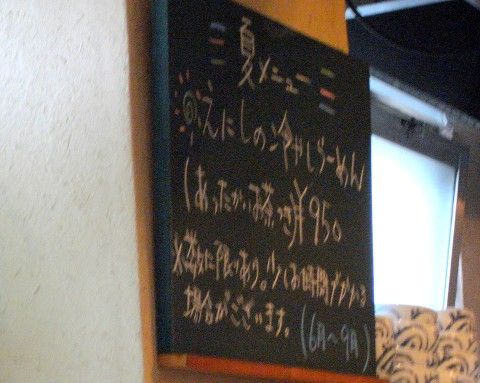 夏メニュー
えにしの冷やしらーめん
(あったかいお茶つき)¥950
※数に限りあり。少しお時間がかかる
場合がございます。
(6月〜9月)